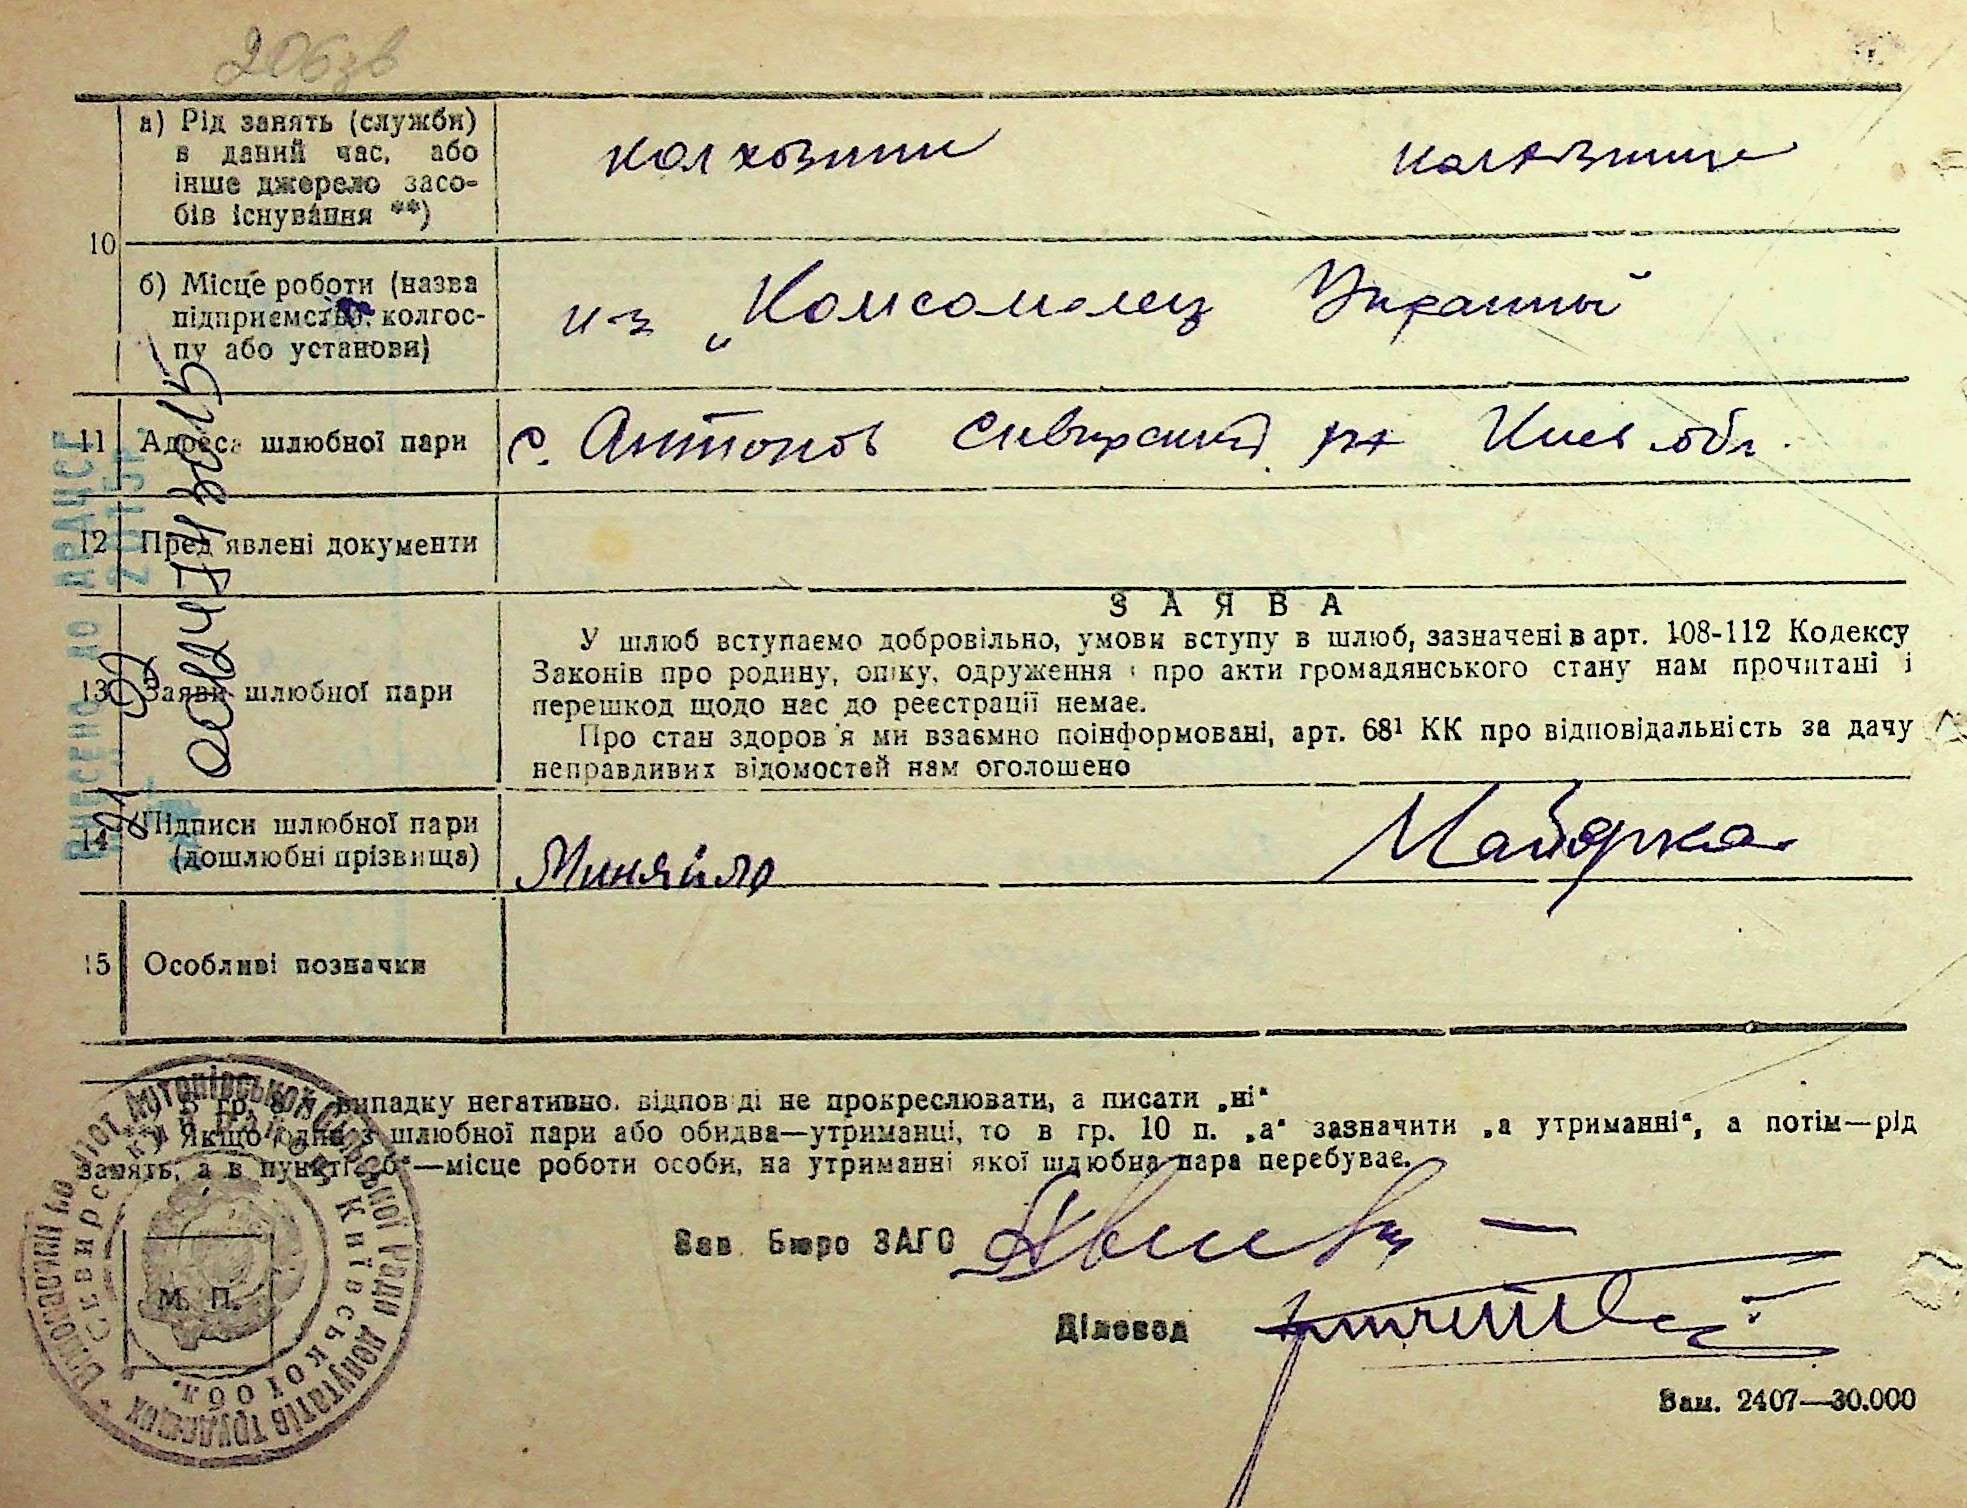 206зв
10
а) Рід занять (служби)
в даний час, або
інше джерело засо-
бів існування **)
колхозник
колхозница
б) Місце роботи (назва
підприємства, колгос-
пу або установи)
к-з „Комсомолец Украины
11 Адреса шлюбної пари
с. Антонов Сквирский р-н Киев обл.
12 Пред'явлені документи
13 Заяви шлюбної пари
ЗАЯВА
У шлюб вступаємо добровільно, умови вступу в шлюб, зазначені в арт. 108-112 Кодексу
Законів про родину, опіку, одруження і про акти громадянського стану нам прочитані і
перешкод щодо нас до реєстрації немає.
Про стан здоров'я ми взаємно поінформовані, арт. 68¹ КК про відповідальність за дачу
неправдивих відомостей нам оголошено
14 Підписи шлюбної пари
(дошлюбні прізвища)
Миняйло
Майярка
15 Особливі позначки
ВНЕСЕНО ДО
2015р.
випадку негативно. відповіді не прокреслювати, а писати „ні“
Якщо одна з шлюбної пари або обидва—утриманці, то в гр. 10 п. „а“ зазначити „а утриманні“, а потім—рід
занять, а в пункті „б“—місце роботи особи, на утриманні якої шлюбна пара перебуває.
Зав. Бюро ЗАГС
Діловод
М. П.
Виконавчий комітет Антонівської Сільської Ради депутатів трудящих
Сквирського району Київської обл.
Зам. 2407—30.000